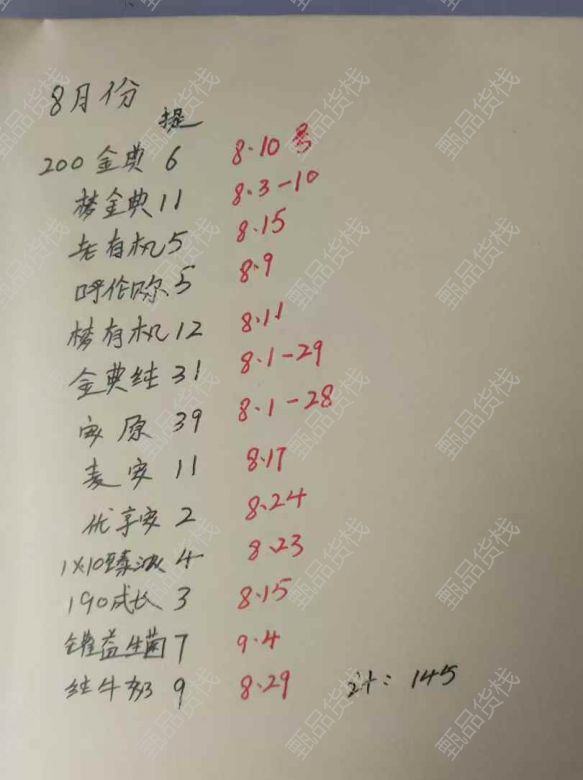 8月份
提
200金典 6 8.10号
梦金典 11 8.3-10
老有机 5 8.15
呼伦贝尔 5 8.9
梦有机 12 8.11
金典纯 31 8.1-29
安原 39 8.1-28
麦安 11 8.17
优享安 2 8.24
1×10臻浓 4 8.23
190成长 3 8.15
罐益生菌 7 9.4
纯牛奶 9 8.29 计：145
甄品货栈